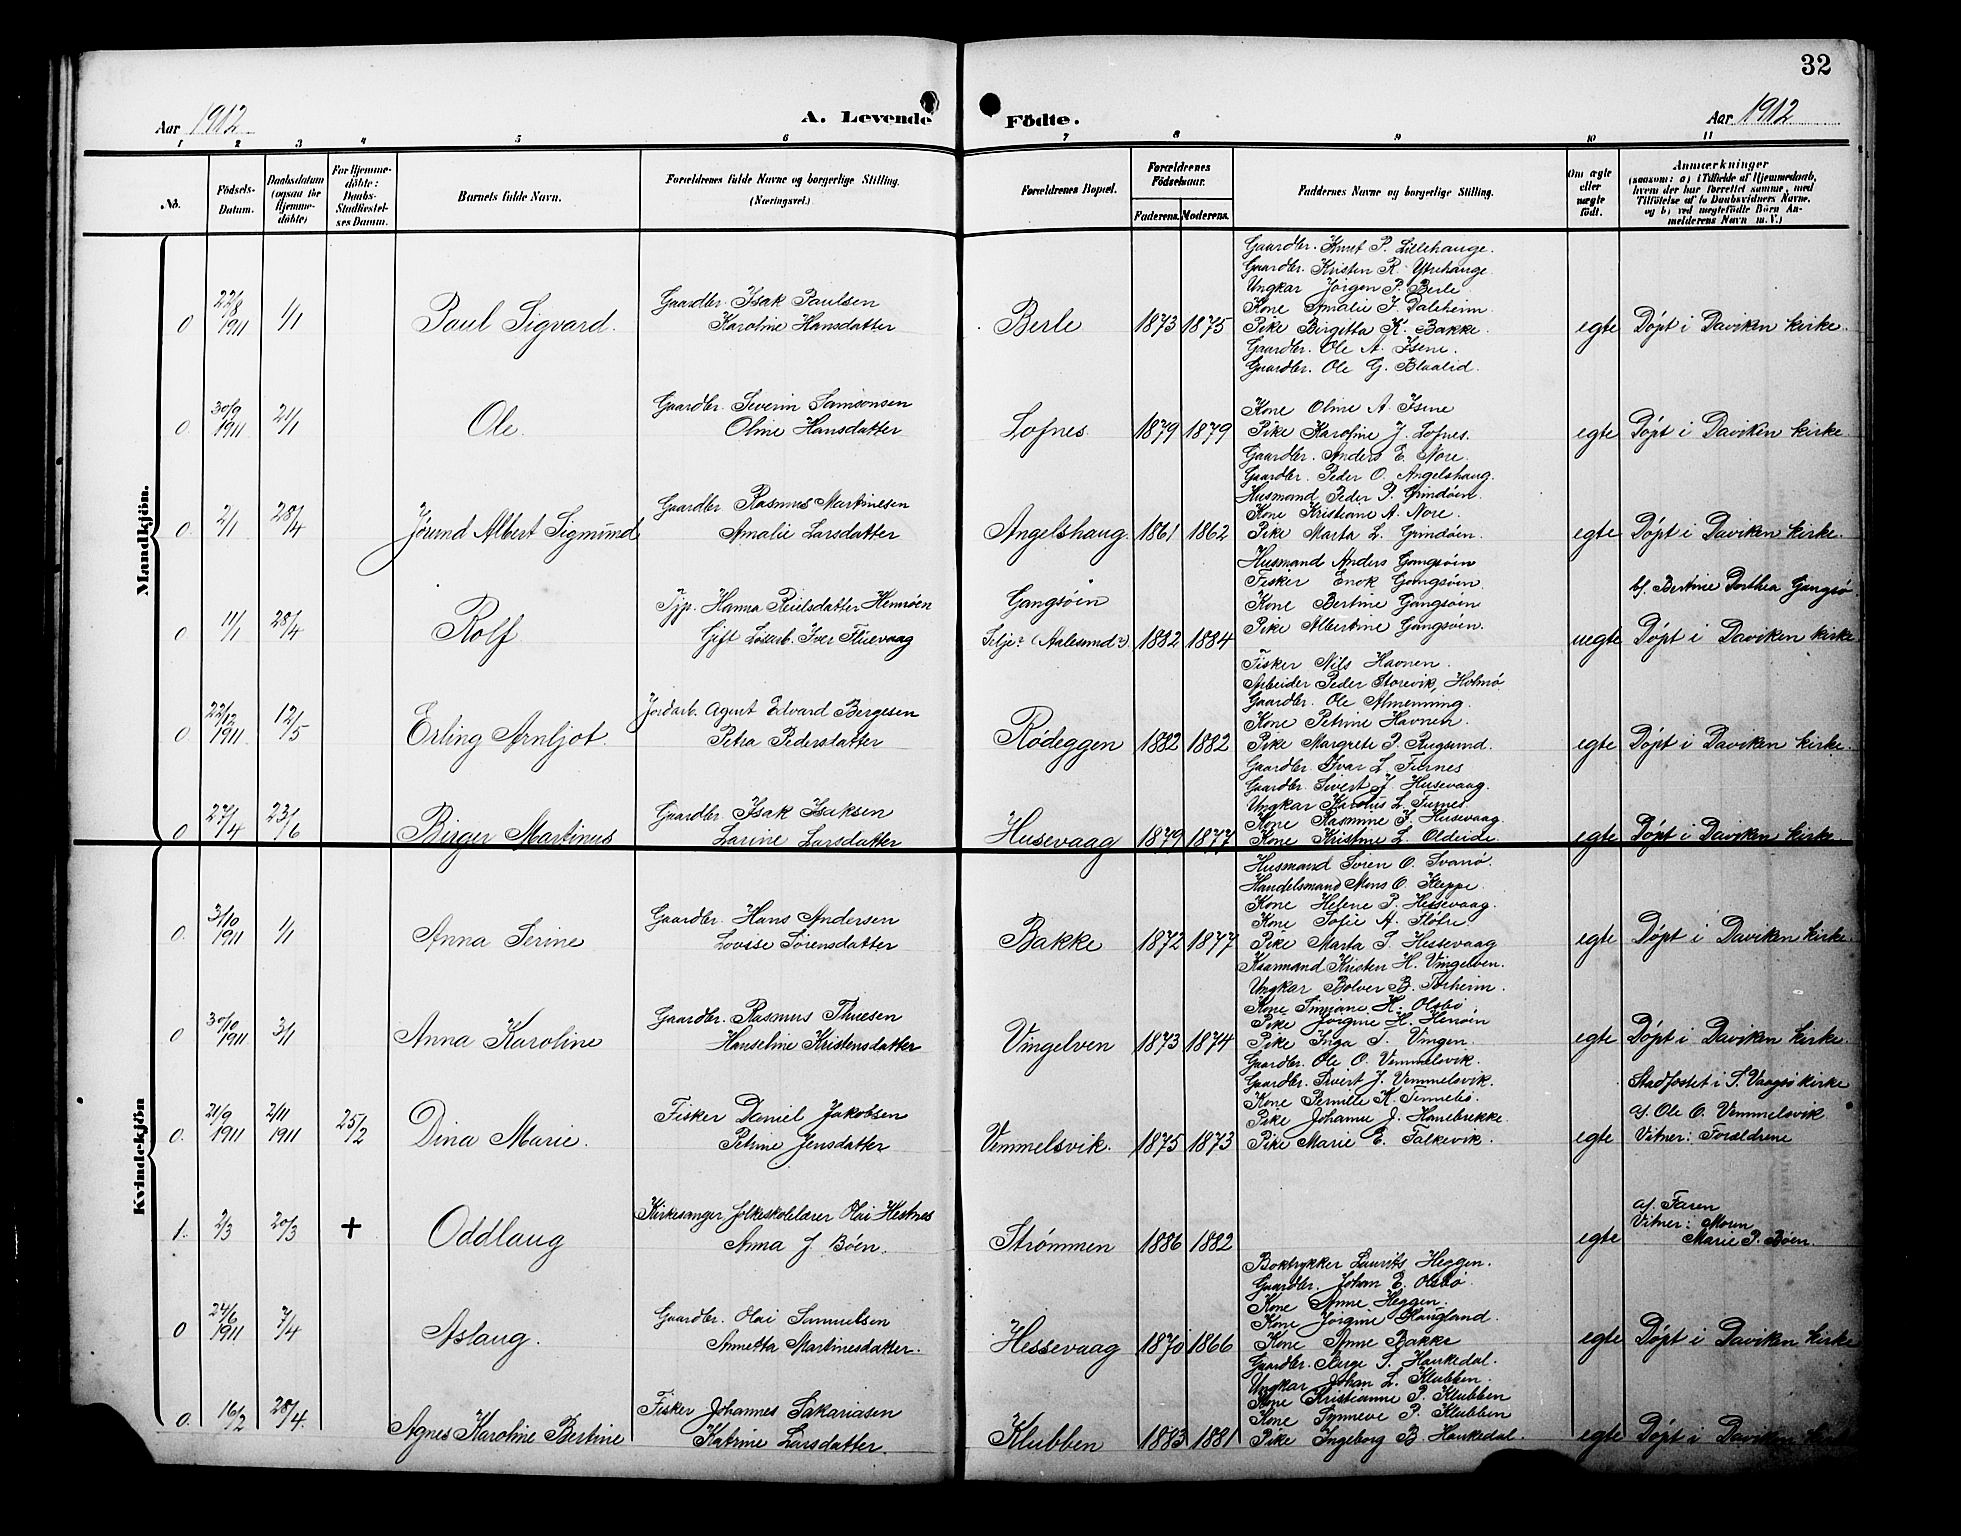 32
Aar 1912
A. Levende
Födte.
Aar 1912
1 2 3 4 5 6 7 8 9 10 11
No.
Födsels-
Datum.
Daabsdatum
(ogsaa for
Hjemme-
döbte)
For Hjemme-
döbte:
Daabs-
Stadfæstel-
ses Datum.
Barnets fulde Navn.
Forældrenes fulde Navne og borgerlige Stilling.
(Næringsvei.)
Forældrenes Bopæl.
Forældrenes
Födselsaar.
Faderens. Moderens.
Faddernes Navne og borgerlige Stilling.
Om ægte
eller
uægte
födt.
Anmærkninger
(saasom: a) i Tilfælde af Hjemmedaab,
hvem der har forrettet samme, med
Tilföielse af to Daabsvidners Navne,
og b) ved uægtefödte Börn An-
melderens Navn m. V.)
Mandkjön.
0 22/8 1911 1/1 Paul Sigvard.
Gaardbr. Isak Paulsen
Karoline Hansdatter
Berle 1873 1875
Gaardbr. Knut P. Lillehauge.
Gaardbr. Kristen R. Ytrehauge.
Ungkar Jörgen P. Berle
Kone Amalie J. Dalsheim
Pike Birgitta K. Bakke.
Gaardbr. Ole A. Isene.
Gaardbr. Ole G. Blaalid.
egte Döpt i Daviken kirke.
0. 30/9 1911 2/1 Ole.
Gaardbr. Severin Samsonsen
Oline Hansdatter
Lofnes. 1879 1879
Kone Oline A. Isene
Pike Karoline J. Lofnes.
Gaardbr. Anders E. Nore.
Gaardbr. Peder O. Angelshaug.
egte Döpt i Daviken kirke.
0 2/1 28/4 Jörund Albert Sigmund
Gaardbr Rasmus Martinesen
Amalie Larsdatter
Angelshaug. 1861 1862
Husmand Peder P. Grindöen.
Kone Kristiane A. Nore.
Pike Marta L. Grindöen.
Husmand Anders Gangsöin
egte Döpt i Daviken kirke.
0 11/1 28/4 Rolf
Tjp. Hanna Reielsdatter Hennöen
Gift Lösarb. Iver Flisevaag
Gangsöin
Selje? (Aalesund?) 1882 1884
Fisker Enok Gangsöin.
Kone Bertine Gangsöin
Pike Albertine Gangsöen.
Fisker Nils Havnen.
uegte b/. Bertine Dorthea Gangsö
Döpt i Daviken kirke
0. 22/12 1911 12/5 Erling Arnljot.
Jordarb. Agent Edvard Bergesen
Petra Pedersdatter
Rödeggen 1882 1882
Arbeider Peder Storevik, Holmö
Gaardbr. Ole Almenning.
Kone Petrine Havnen.
Pike Margrete P. Rugsund.
Gaardbr. Ivar L. Furnes
egte Döpt i Daviken kirke.
0 27/4 23/6 Birger Martinus
Gaardbr Isak Isaksen
Larine Larsdatter
Husevaag 1879 1877
Gaardbr. Sivert J. Husevaag.
Ungkar Karolus L. Furnes
Kone Rasmine J. Husevaag
Kone Kristine L. Oldeide.
egte Döpt i Daviken kirke
Kvindekjön
0. 31/10 1911 1/1 Anna Serine
Gaardbr. Hans Andersen
Lovise Sörensdatter
Bakke 1872 1877
Husmand Sören O. Svanö.
Handelsmand Mons O. Kleppe.
Kone Helene P. Hessevaag.
Kone Sofie A. Flöhe.
Pike Marta S. Hessevaag
egte Döpt i Daviken kirke.
0 30/10 1911 3/1 Anna Karoline
Gaardbr. Rasmus Thuesen
Hanseline Kristensdatter
Vingelven 1873 1874
Kaarmand Kristen H. Vingelven.
Ungkar Bolver B. Torheim.
Kone Simiane H. Olsbö
Pike Jörgine H. Henöin
Pike Inga T. Vingen.
egte Döpt i Daviken kirke.
0. 21/9 1911 2/11 1911 25/2 Dina Marie.
Fisker Daniel Jakobsen
Petrine Jensdatter
Vemmelsvik. 1875 1873
Gaardbr. Ole O. Vemmelsvik.
Gaardbr. Sivert J. Vemmelsvik.
Kone Pernille K. Tennebö.
Pike Johanne J. Hanebrekke
Pike Marie E. Falkevik.
egte Stadfostet i S. Vaagsö kirke
a/. Ole O. Vemmelsvik
Vitner: Foreldrene
1. 2/3 20/3 + Oddlaug
Kirkesanger folkeskolelærer Olai Hestnes
Anna J. Böen.
Strömmen 1886 1882
egte a/. Faren
Vitner: Moren
Marie P. Böen.
0 24/6 1911 7/4 Aslaug.
Gaardbr. Olai Samuelsen
Annetta Martinesdatter.
Hessevaag 1870 1866
Boktrykker Laurits Heggen.
Gaardbr. Johan E. Olsbö.
Kone Anne Heggen.
Kone Jörgine Haugland.
Kone Anne Bakke
egte Döpt i Daviken kirke
0. 16/2 28/4. Agnes Karoline Bertine
Fisker Johannes Sakariasen
Katrine Larsdatter.
Klubben 1883 1881
Gaardbr. Birge S. Haukedal.
Ungkar Johan L. Klubben.
Kone Kristianne P. Klubben
Kone Synneve P. Klubben
Pike Ingeborg B. Haukedal.
egte Döpt i Daviken kirke